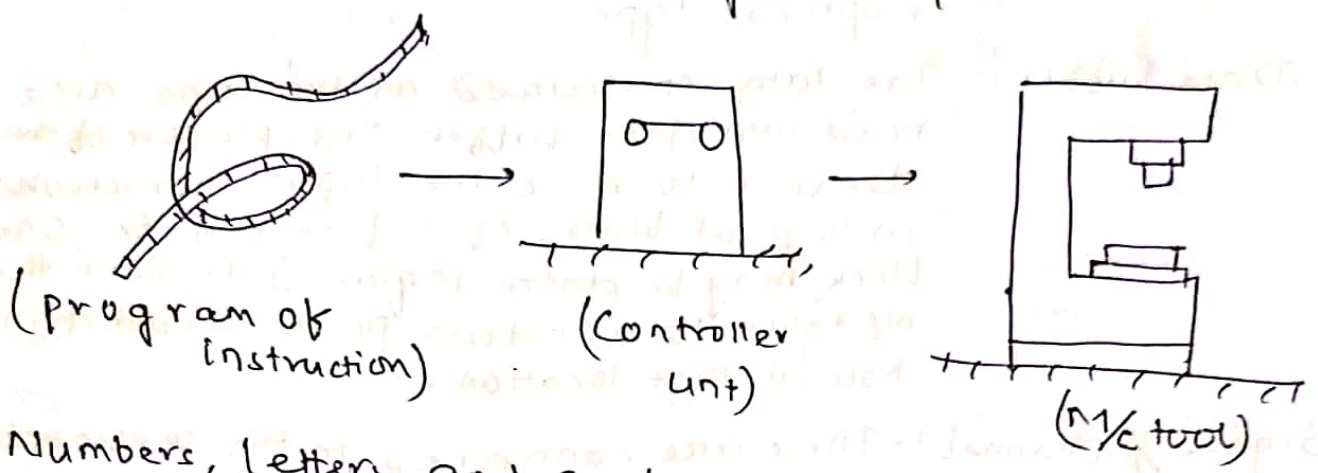 (program of
instruction)
(Controller
unt)
(M/c tool)
Numbers, letter